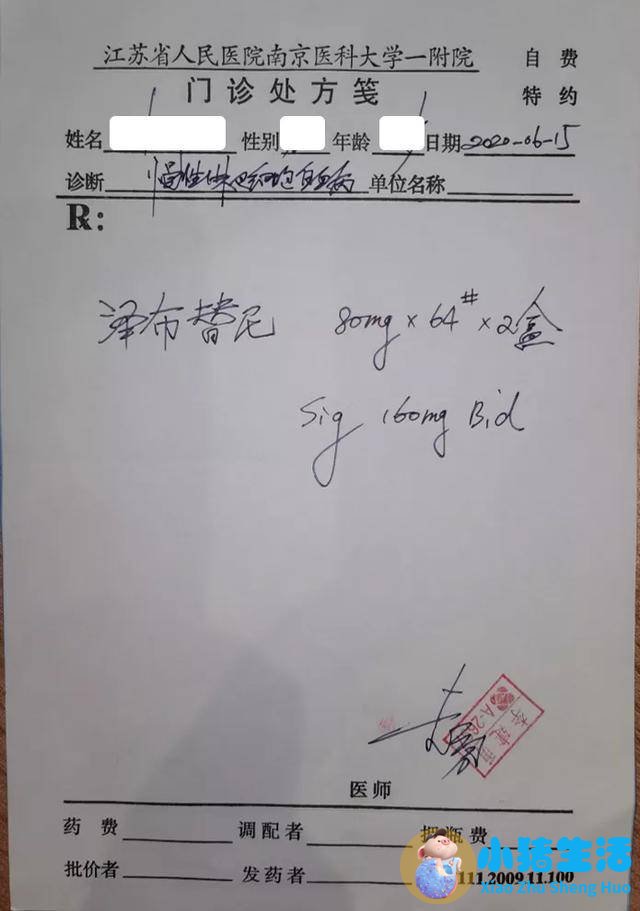 江苏省人民医院南京医科大学一附院 自费
门诊处方笺 特约
姓名 性别 年龄 日期 2020-06-15
诊断 慢性淋巴细胞白血病 单位名称
R:
泽布替尼 80mg × 64# × 2盒
Sig 160mg Bid
医师
药费 调配者 费
批价者 发药者 111.2009.11.100
小猪生活
Xiao Zhu Sheng Huo